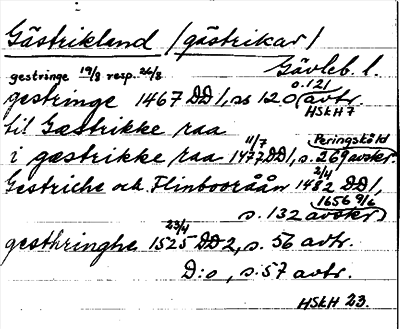 Gästrikland (gästrikar)
Gävleb. l.
gestringe 19/8 resp. 24/8
gestringe 1467 DD 1, ss 120 o. 121 avtr.
HSkH 7
til Gæstrikke raa
i gæstrikke raa 11/7 1477 DD 1, s. 269 avskr. Peringsköld
Gestriche och Flinbooråån 2/4 1482 DD 1,
s. 132 avskr. 1656 9/6
gesthringhe 23/4 1525 DD 2, s. 56 avtr.
D:o, s. 57 avtr.
HSkH 23.